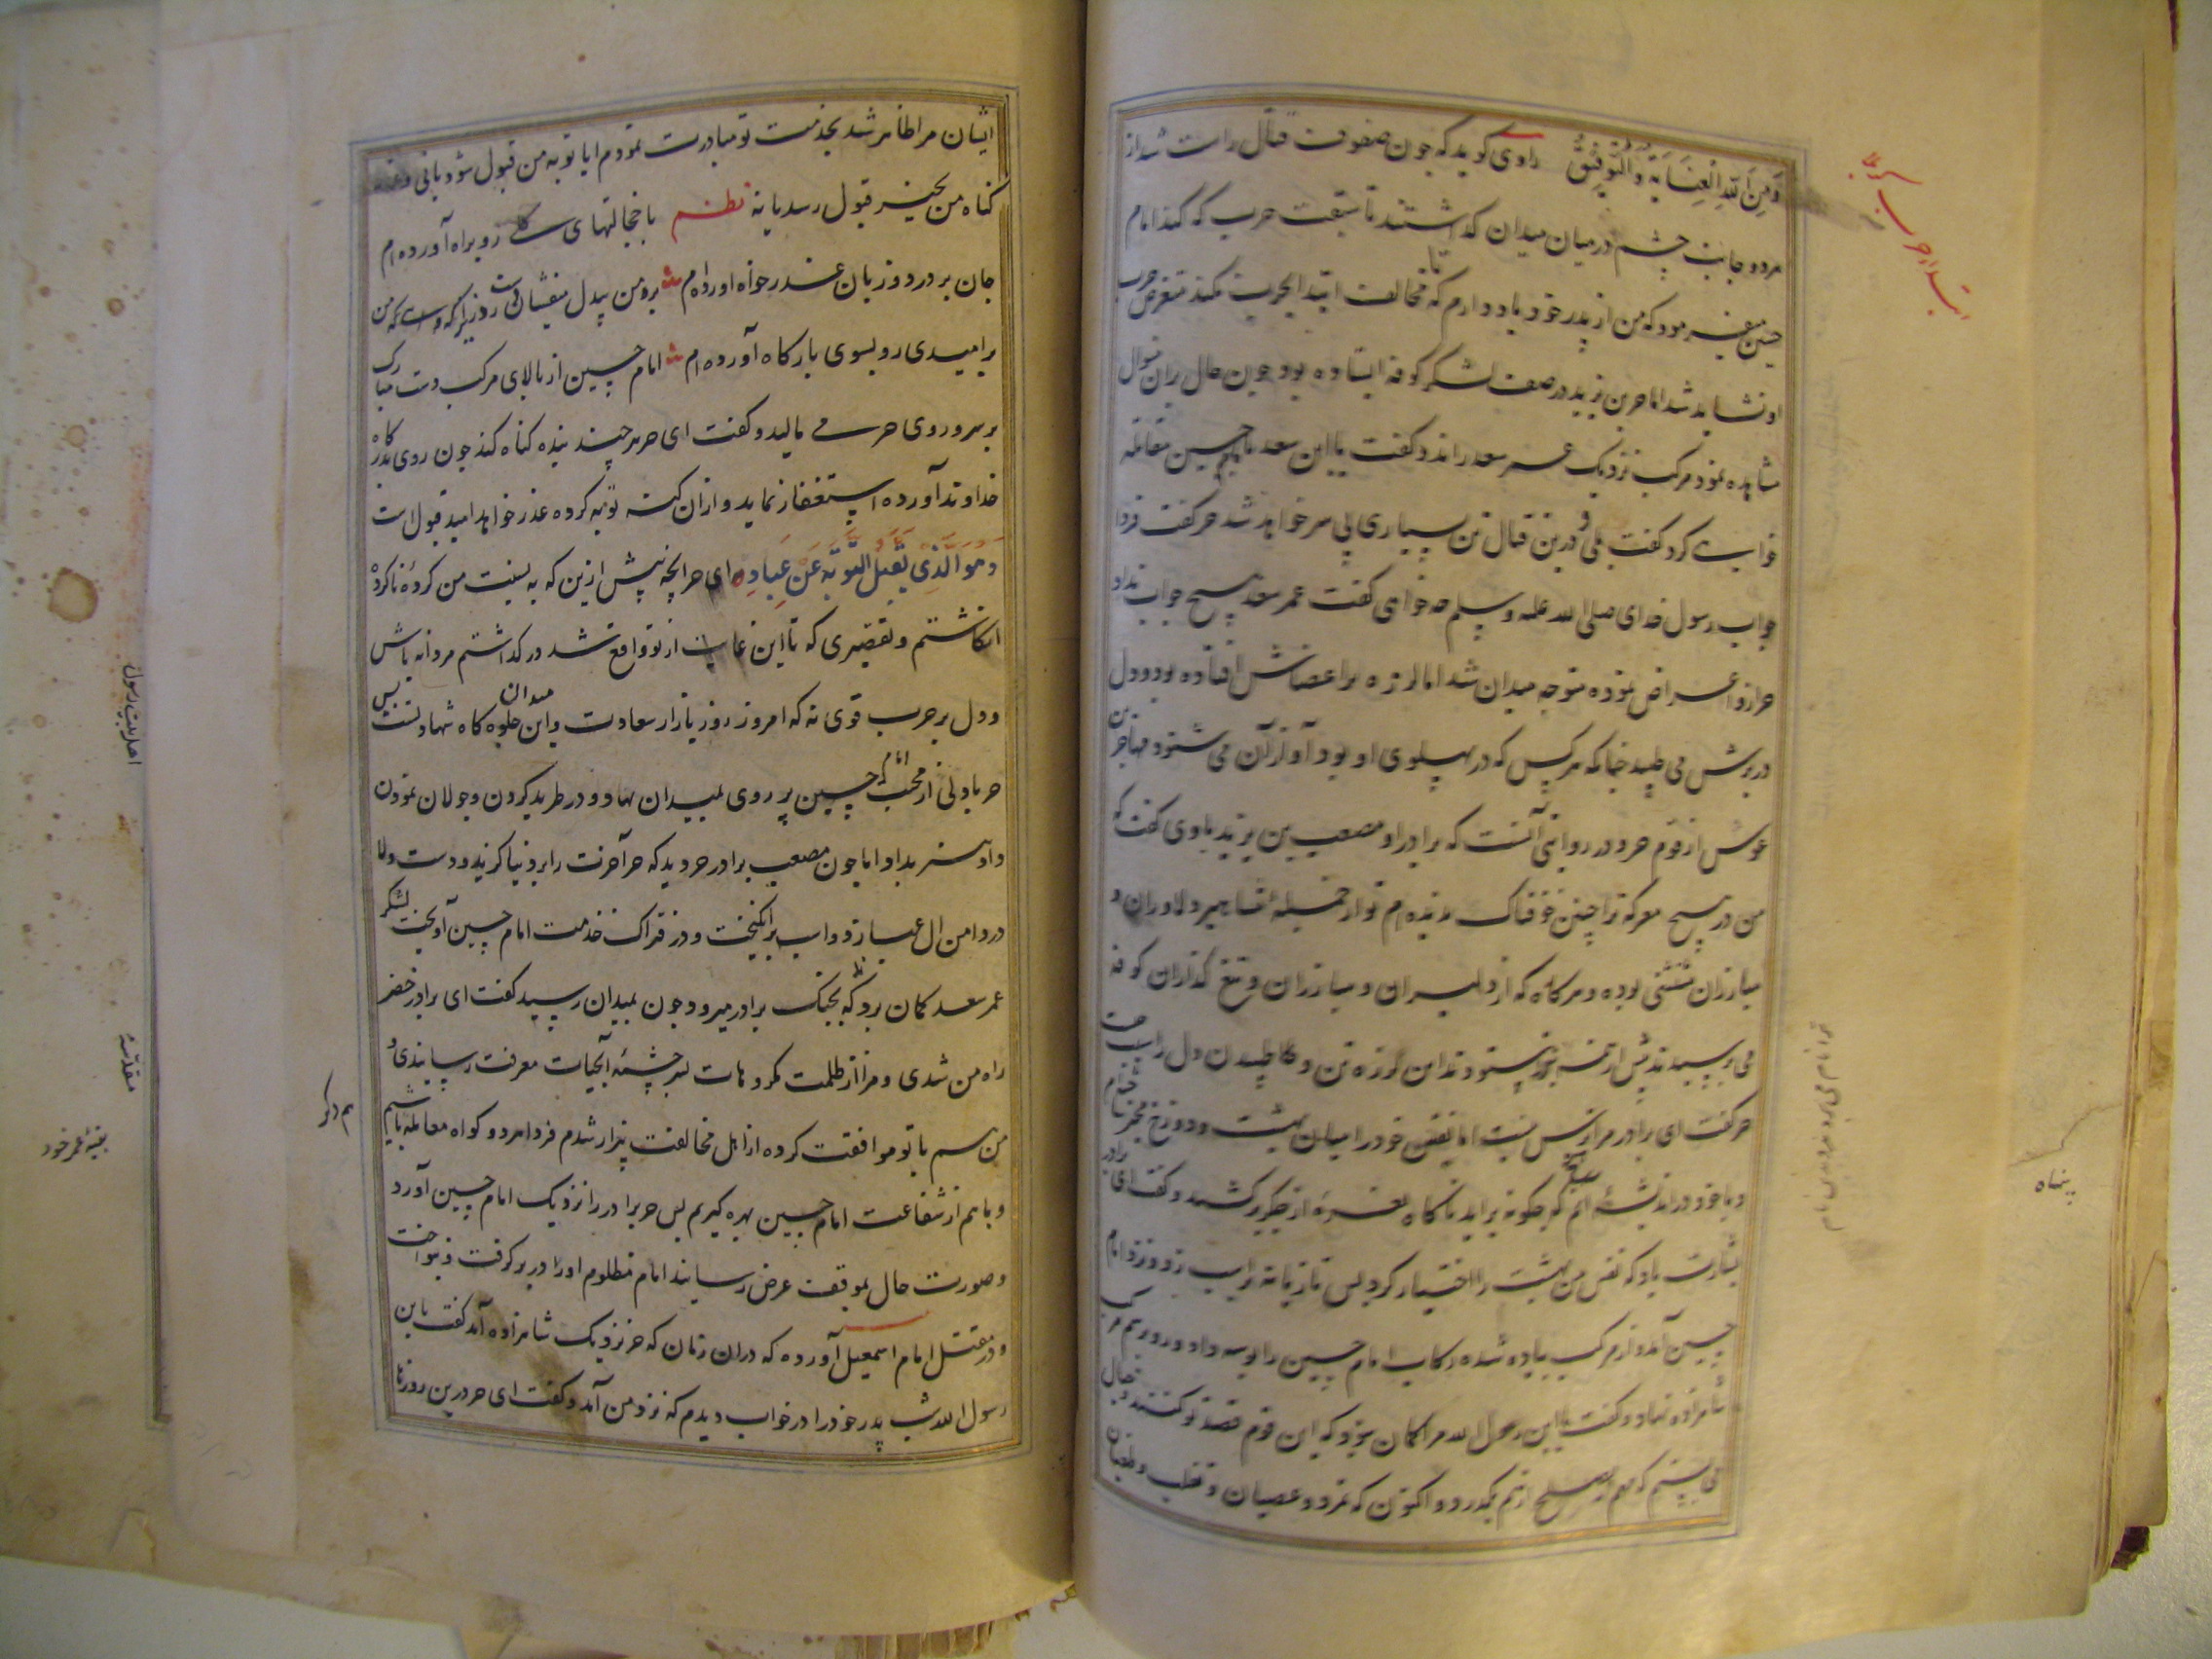 وَمِنَ اللّهِ الْعِنَايَةُ وَالتَّوفِيقُ راوی کوید که چون صفوف قتال راست شد از
هر دو جانب چشم در میان میدان کذاشتند تا سبقت حرب که کند امام
حسین میفرمود که من از پدر خود یاد دارم که تا مخالف ابتدا بحرب نکند متعرض حرب
او نشاید شد اما حر بن یزید در صف لشکر کوفه ایستاده بود چون حال بران منوال
مشاهده نمود مرکب نزدیک عمر سعد راند و کفت یا ابن سعد با حسین مقاتله
خواهی کرد کفت بلی و درین قتال تن بسیاری بی سر خواهد شد حر کفت فردا
جواب رسول خدای صلی الله علیه وسلم چه خواهی کفت عمر سعد هیچ جواب نداد
حر ازو اعراض نموده متوجه میدان شد اما لرزه بر اعضاش افتاده بود و دل
در برش می طپید چنانکه هر کس که در پهلوی او بود آواز آن می شنود مهاجر بن
عوس از قوم حر و در روایتی آنست که برادر او مصعب بن یزید با وی کفت که
من در هیچ معرکه ترا چنین خوفناک ندیده ام تو از جمله مشاهیر دلاوران و
مبارزان مستثنی بوده و هرکاه که از دلیران و مبارزان و تیغ کذاران کوفه
می پرسیدند پیش از همه ترا می ستودند این لرزه تن و طپیدن دل را سبب چیست
حر کفت ای برادر مرا ترس نیست اما نفس خود را میان بهشت و دوزخ مخیر ساخته ام
و با خود در اندیشه ام که چکونه برآید ناکاه نعره از جکر برکشید و کفت ای برادر
بشارت باد که نفس من بهشت را اختیار کرد پس تازیانه بر اسب زد و نزد امام
حسین آمد و از مرکب پیاده شده رکاب امام حسین را بوسه داد و روی بر سم مرکب
شاهزاده نهاد و کفت یا ابن رسول الله مرا کمان نبود که این قوم قصد تو کنند و خیال
می بستم که مهم بصلح از هم بکذرد و اکنون که تمرد و عصیان و تغلب و طغیان
ابتداء حرب کربلا
پناه
ایشان مرا ظاهر شد بخدمت تو مبادرت نمودم ایا توبه من قبول شود یا نی و
کناه من بحیز قبول رسد یا نه نظم با خجالتهای کلی رو براه آورده ام
جان بر درد و زبان عذر خواه اورده ام
بر امیدی رو بسوی بارکاه آورده ام امام حسین از بالای مرکب دست مبارک
بر سر و روی حر می مالید و کفت ای حر هر چند بنده کناه کند چون روی بدرکاه
خداوند آورده استغفار نماید و ازان کنه توبه کرده عذر خواهد امید قبول است
وَهُوَ الَّذِي يَقْبَلُ التَّوبَةَ عَنْ عِبَادِهِ ای حر انچه پیش ازین که به نسبت من کردهٔ ناکرده
انکاشتم و تقصیری که تا این غایت از تو واقع شد در کذاشتم مردانه باش
و دل بر حرب قوی نه که امروز روز بازار سعادت و این میدان جلوه کاه شهادتست پس
حر با دلی از محبت امام حسین پر روی بمیدان نهاد و در طرید کردن و جولان نمودن
داد هنر بداد اما چون مصعب برادر حر دید که حر آخرت را بر دنیا کزید و دست ولا
در دامن ال عبا زد و اسب برانکیخت و در فتراک خدمت امام حسین آویخت لشکر
عمر سعد کمان برد که بجنک برادر میرود چون بمیدان رسید کفت ای برادر خضر
راه من شدی و مرا از ظلمت کمراهی بسر چشمهٔ آبحیات معرفت رسانیدی و
من هم با تو موافقت کرده از اهل مخالفت بیزار شدم فردا هر دو کواه معامله باشیم
و با هم از شفاعت امام حسین بهره کیریم پس حر برادر را نزدیک امام حسین آورد
و صورت حال بموقف عرض رسانید امام مظلوم اورا در بر کرفت و بنواخت
و در مقتل امام اسمعیل آورده که دران زمان که حر نزدیک شاهزاده آمد کفت یا بن
رسول الله شب پدر خود را در خواب دیدم که نزد من آمد و کفت ای حر درین روزها
هم دکر
اهل بیت رسول
مقدسهٔ
بقیهٔ عمر خود